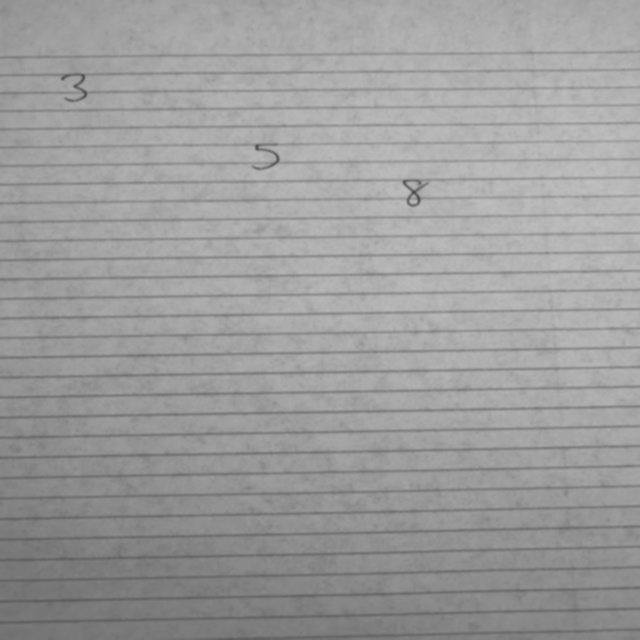 3
5
8